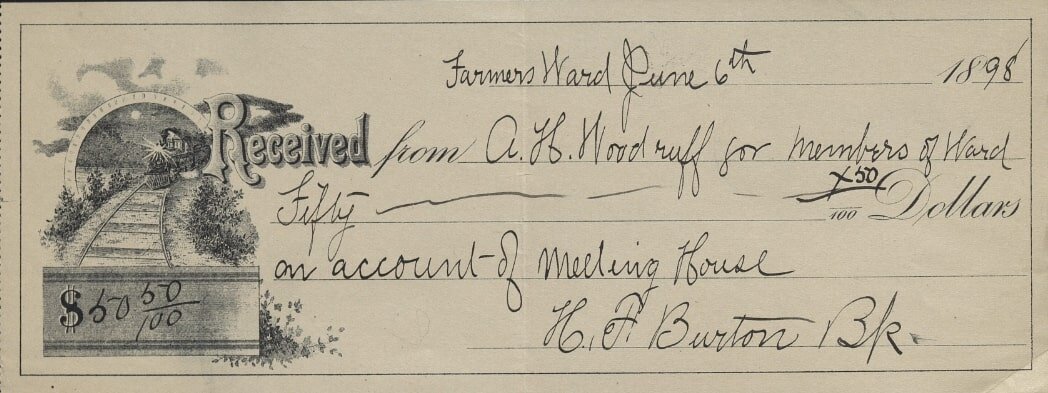 Farmers Ward June 6th 1898
Received from A. H. Woodruff for members of Ward
Fifty x 50/100 Dollars
on account of Meeting House
$50 50/100
H. F. Burton Bk.